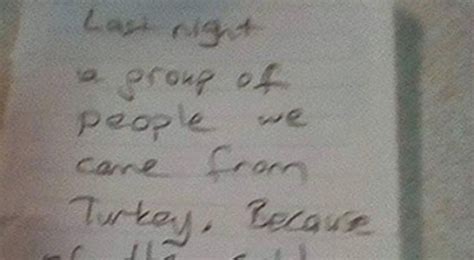 Last night
a group of
people we
came from
Turkey. Because
of the